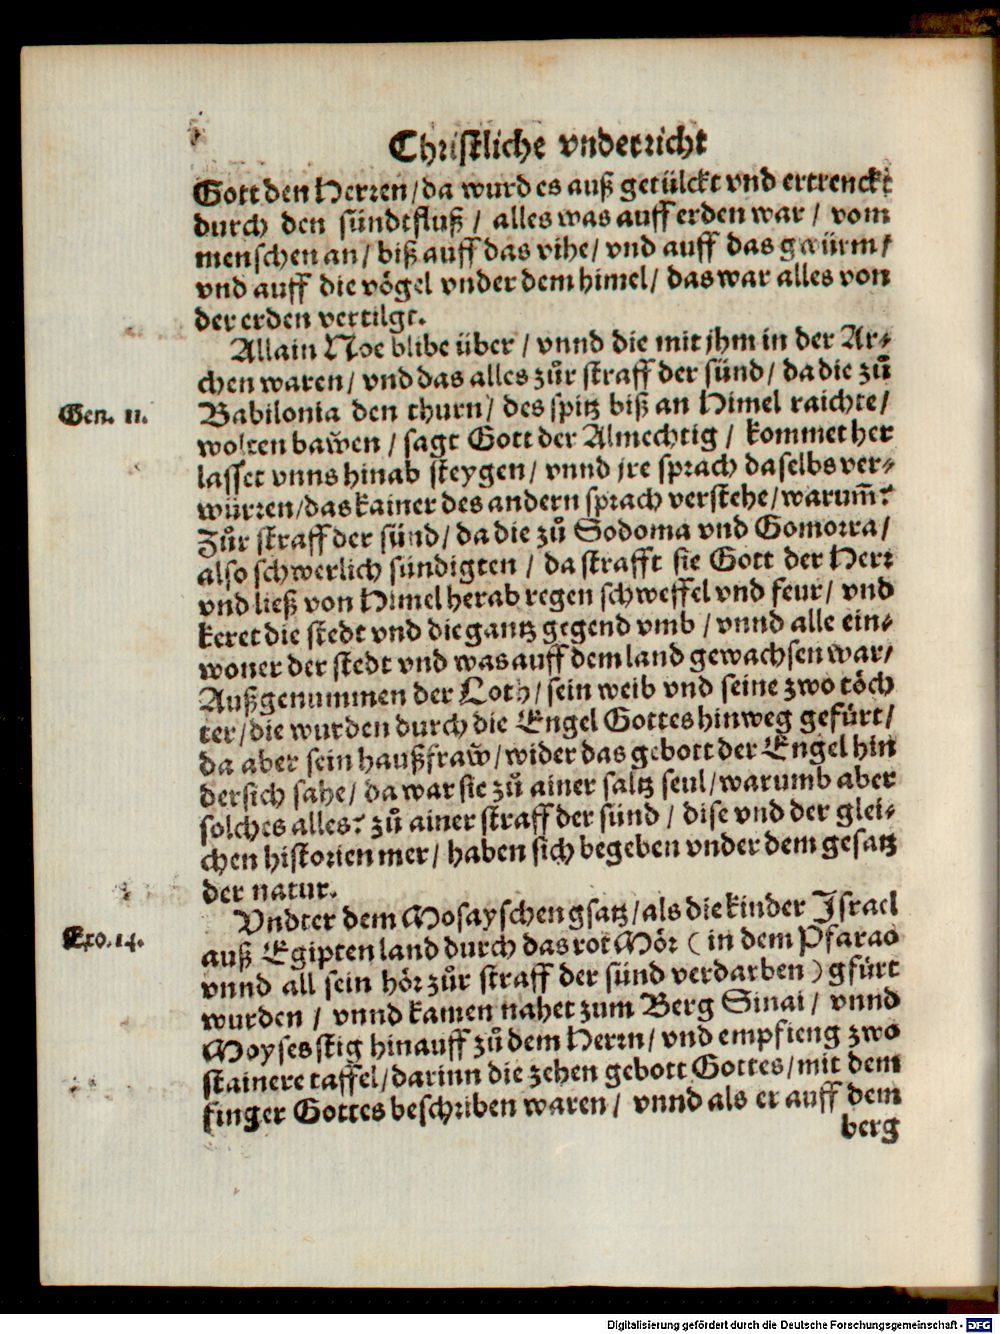 Christliche vnderricht
Gott den Herren / da wurd es auß getülckt vnd ertrenckt
durch den sündtfluß / alles was auff erden war / vom
menschen an / biß auff das vihe / vnd auff das gwürm /
vnd auff die vögel vnder dem himel / das war alles von
der erden vertilgt.
Allain Noe blibe über / vnnd die mit jhm in der Ar⸗
chen waren / vnd das alles zůr straff der sünd / da die zů
Gen. 11.
Babilonia den thurn / des spitz biß an Himel raichte /
wolten bawen / sagt Gott der Almechtig / kommet her
lasset vnns hinab steygen / vnnd jre sprach daselbs ver⸗
würren / das kainer des andern sprach verstehe / warum̄?
Zůr straff der sünd / da die zů Sodoma vnd Gomorra /
also schwerlich sündigten / da strafft sie Gott der Herr
vnd ließ von Himel herab regen schweffel vnd feur / vnd
keret die stedt vnd die gantz gegend vmb / vnnd alle ein⸗
woner der stedt vnd was auff dem land gewachsen war /
Außgenummen der Loth / sein weib vnd seine zwo töch
ter / die wurden durch die Engel Gottes hinweg gefürt /
da aber sein haußfraw / wider das gebott der Engel hin
dersich sahe / da war sie zů ainer saltz seul / warumb aber
solches alles? zů ainer straff der sünd / dise vnd der glei⸗
chen historien mer / haben sich begeben vnder dem gesatz
der natur.
Vndter dem Mosayschen gsatz / als die kinder Israel
Exo. 14.
auß Egipten land durch das rot Mör ( in dem Pfarao
vnnd all sein hör zůr straff der sünd verdarben ) gfürt
wurden / vnnd kamen nahet zum Berg Sinai / vnnd
Moyses stig hinauff zů dem Herrn / vnd empfieng zwo
stainere taffel / darinn die zehen gebott Gottes / mit dem
finger Gottes beschriben waren / vnnd als er auff dem
berg
Digitalisierung gefördert durch die Deutsche Forschungsgemeinschaft - DFG